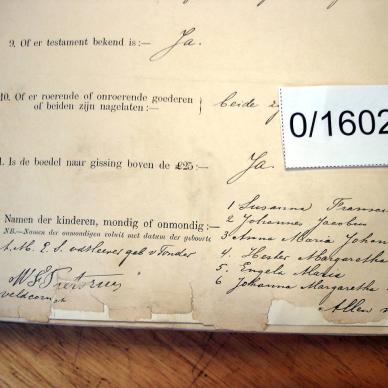 9. Of er testament bekend is :— Ja.
10. Of er roerende of onroerende goederen
of beiden zijn nagelaten :— beide
0/1602
. Is de boedel naar gissing boven de £25 :— Ja.
Namen der kinderen, mondig of onmondig :—
NB.—Namen der onmondigen voluit met datum der geboorte
1 Susanna
2 Johannes Jacobus
3 Anna Maria Johan
4. Hester Margaretha
5. Engela Maria
6 Johanna Margaretha
Allen
A. M. E. S. v Tonder
veldcornet